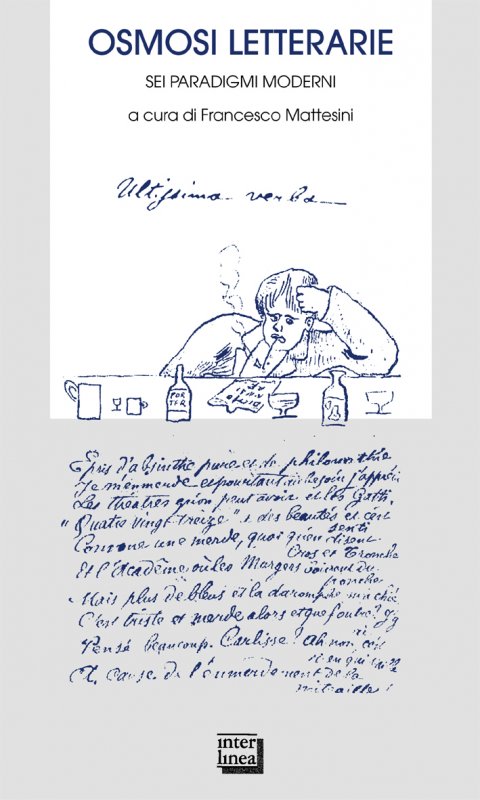 OSMOSI LETTERARIE
SEI PARADIGMI MODERNI
a cura di Francesco Mattesini
Ultissima verba
POR
TER
Épris d'absinthe pure et de philomathie
Je m'emmerde et pourtant au besoin j'apprécie
Les théâtres qu'on peut avoir et les Gatti.
"Quatre vingt-treize" a des beautés et c'est senti
Comme une merde, quoi qu'en disent Cros et Tronche
Et l'Académie où les Murgers boivent du
Mais plus de bleus et la daromphe m'a chié
C'est triste et merde alors et que foutre? J'y
Pense beaucoup. Carlisse? Ah non, c'est
A cause de l'emmerdement de la
mitraille!
inter
linea